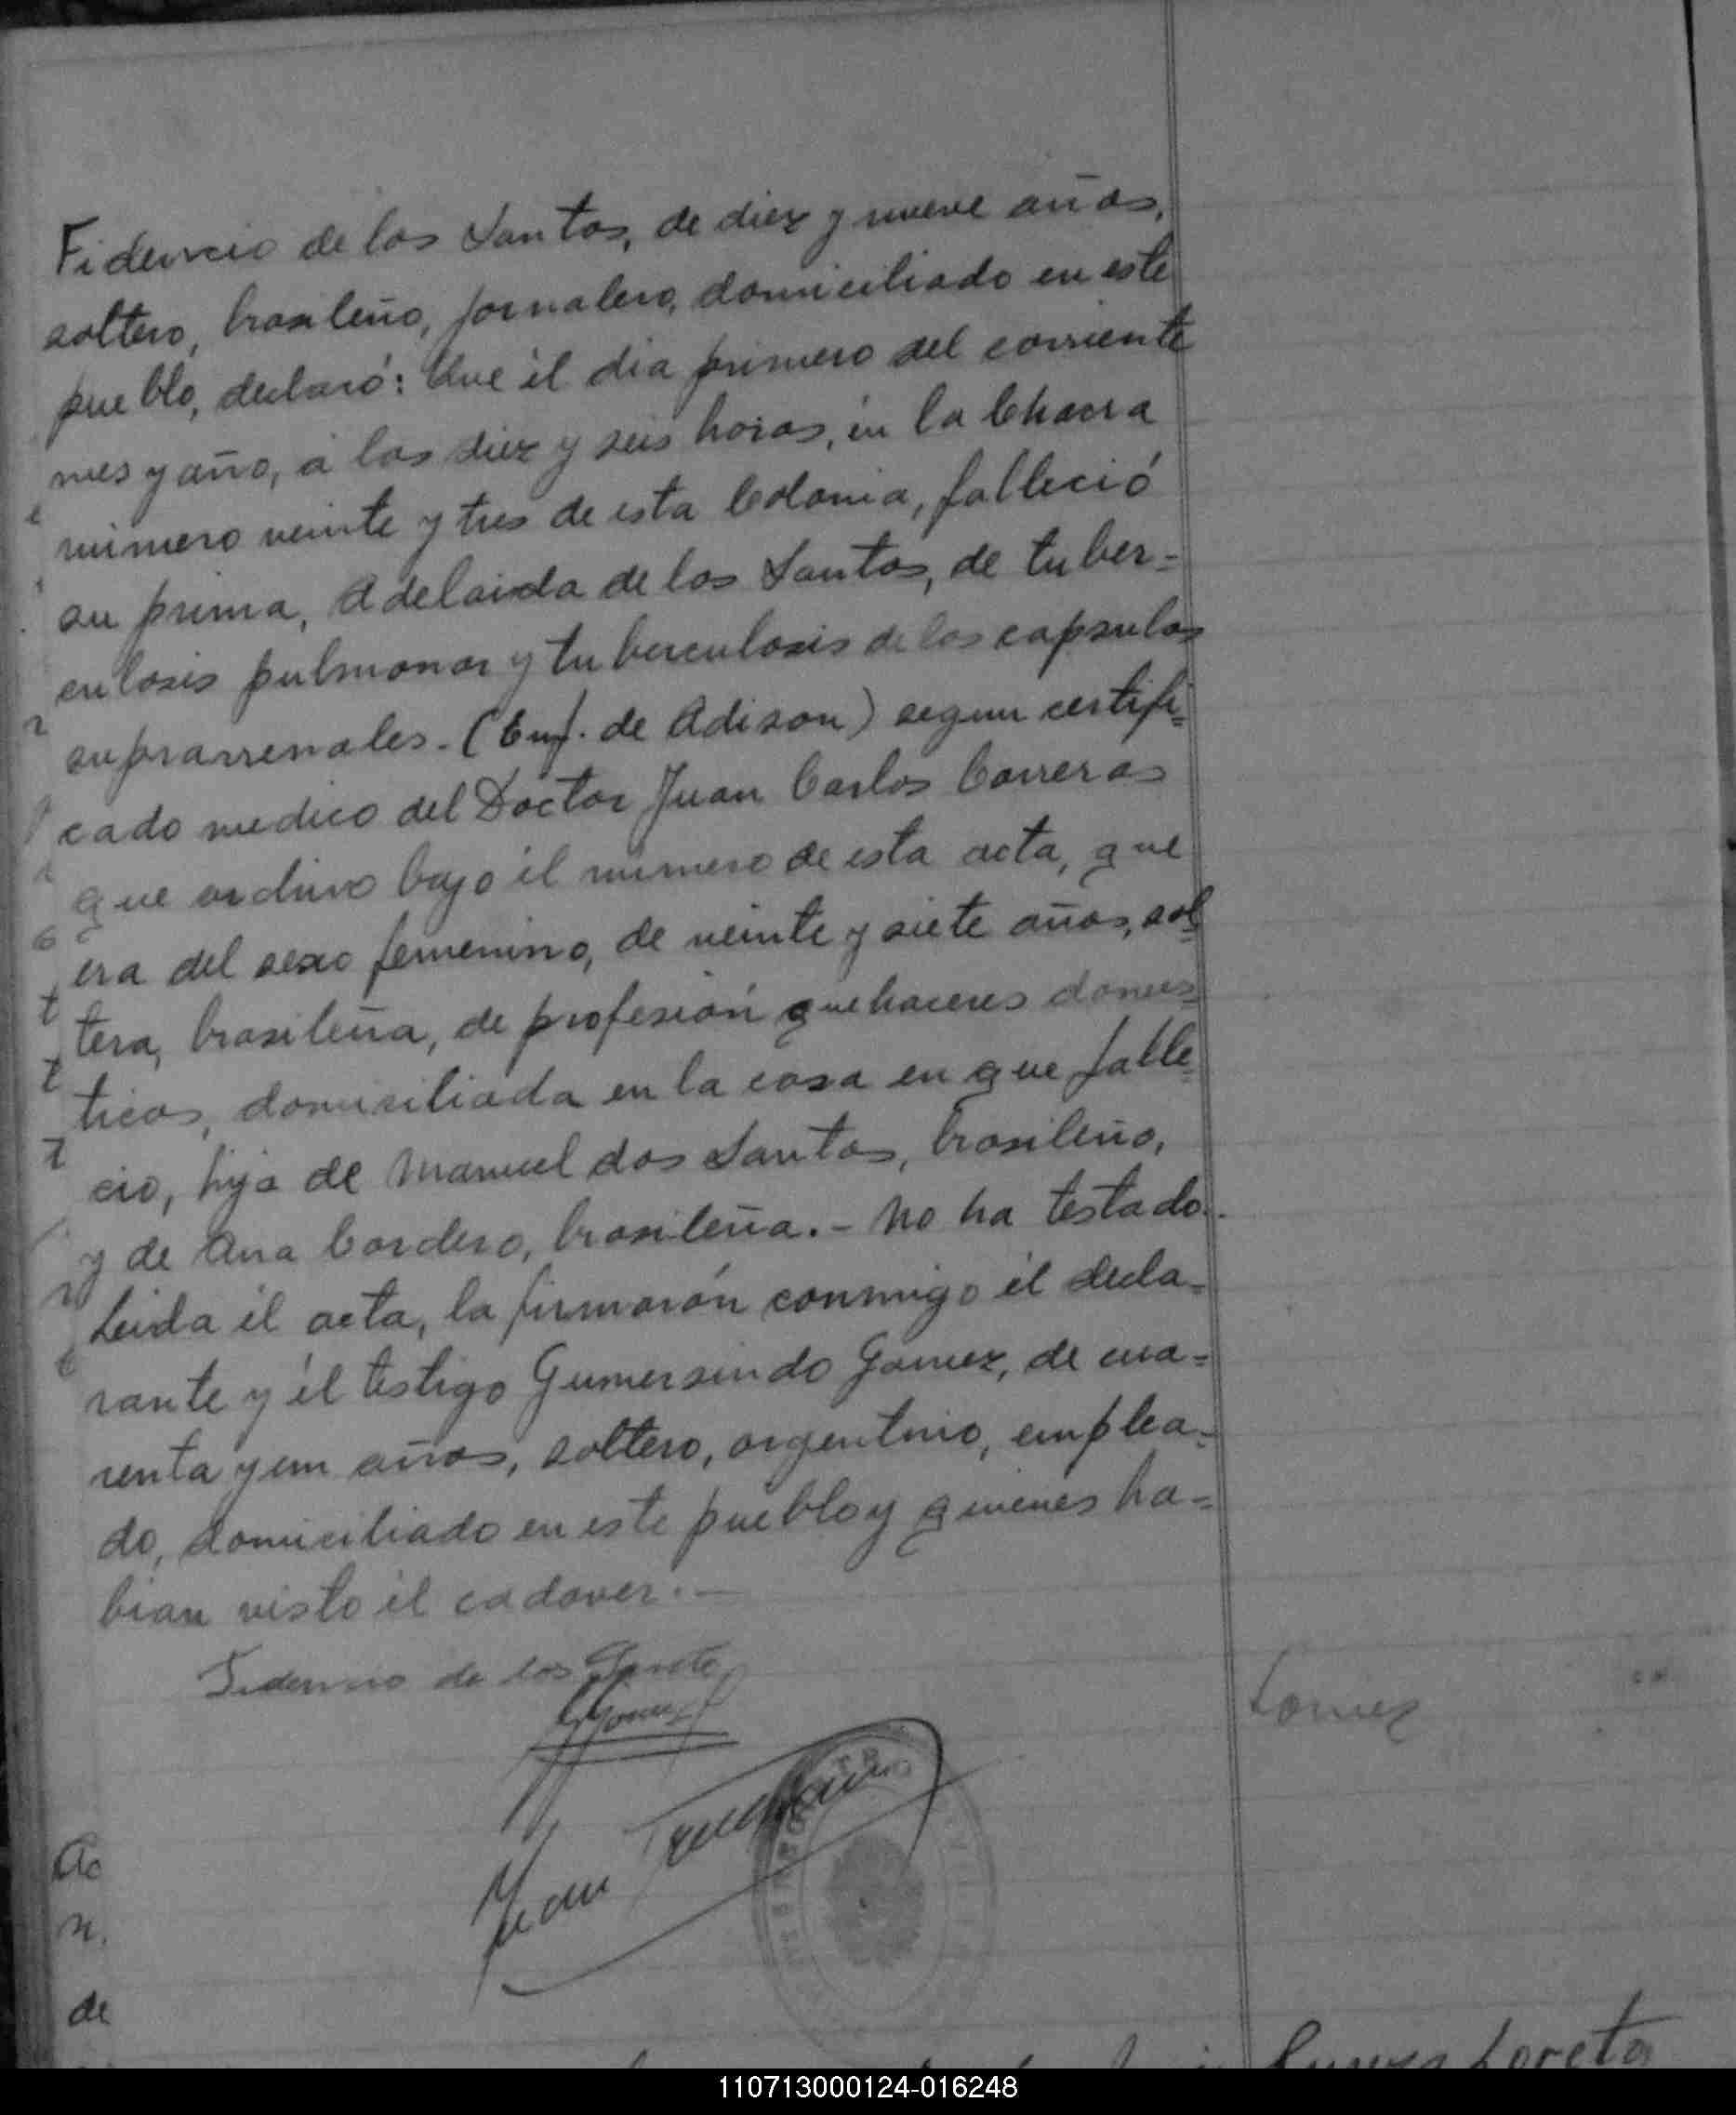 Fidencio de los Santos, de diez y nueve años,
soltero, brasileño, jornalero, domiciliado en este
pueblo, declaró: Que él dia primero del corriente
mes y año, á las diez y seis horas, en la Chacra
número veinte y tres de esta Colonia, falleció
su prima, Adelaida de los Santos, de tuber=
culosis pulmonar y tuberculosis de las capsulas
suprarrenales. (Enf. de Adison) segun certifi=
cado medico del Doctor Juan Carlos Carreras
que archivo bajo él número de esta acta, que
era del sexo femenino, de veinte y siete años, sol=
tera, brasileña, de profesión quehaceres domes=
ticos, domiciliada en la casa en que falle=
cio, hija de Manuel dos Santos, brasileño,
y de Ana Cordero, brasileña. - No ha testado.
Leida él acta, la firmarón conmigo él decla=
rante y él testigo Gumersindo Gomez, de cua=
renta y un años, soltero, argentino, emplea=
do, domiciliado en este pueblo y quienes ha=
bian visto él cadaver. -
Fidencio de los Santo
GGomez
Juan
Ac
n.
de
Loreto
110713000124-016248